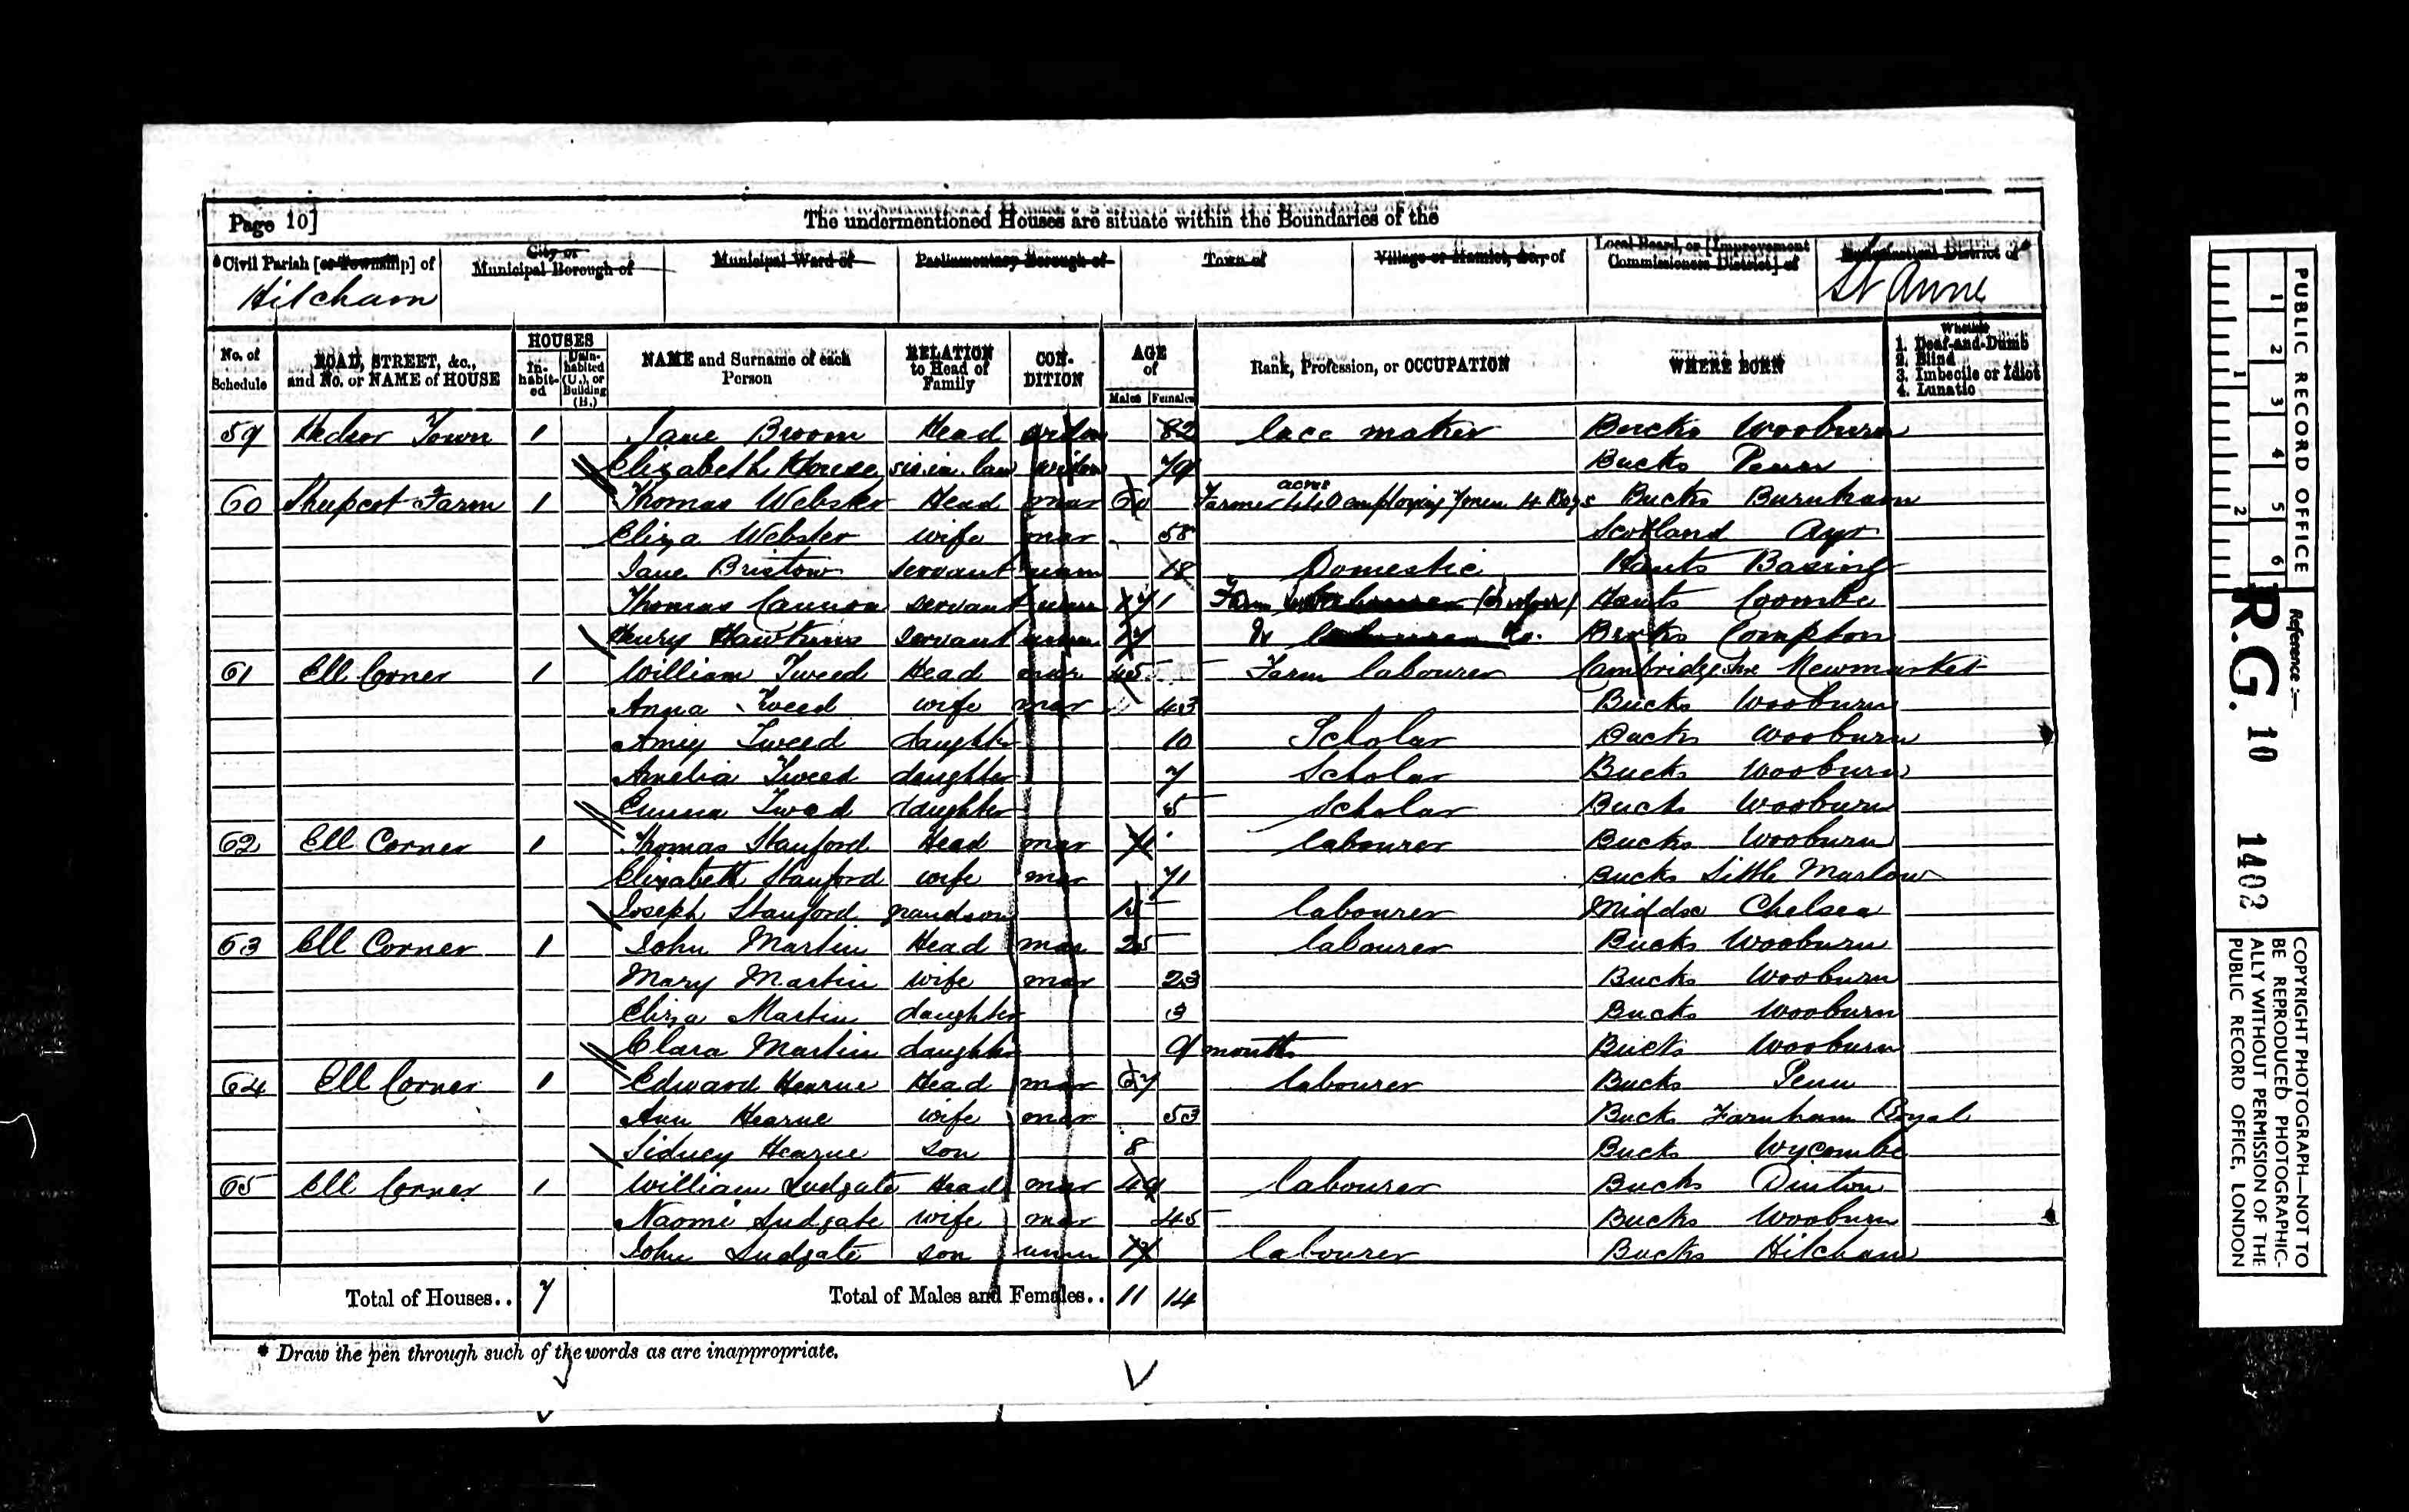 Page 10] The undermentioned Houses are situate within the Boundaries of the
*Civil Parish [or Township] of City or Municipal Borough of Municipal Ward of Parliamentary Borough of Town of Village or Hamlet, &c., of Local Board, or [Improvement Commissioners District] of Ecclesiastical District of
Hitcham St Anne
No. of Schedule ROAD, STREET, &c., and No. or NAME of HOUSE HOUSES In-habit-ed Unin-habited (U.), or Building (B.) NAME and Surname of each Person RELATION to Head of Family CON-DITION AGE of Males Females Rank, Profession, or OCCUPATION WHERE BORN Whether 1. Deaf-and-Dumb 2. Blind 3. Imbecile or Idiot 4. Lunatic
59 Hedsor Town 1 Jane Broom Head widow 82 lace maker Bucks Wooburn
Elizabeth House sis. in. law widow 79 Bucks Penn
60 Shepcot Farm 1 Thomas Webster Head mar 60 Farmer acres employing 7 men 4 Boys Bucks Burnham
Eliza Webster wife mar 58 Scotland Ayr
Jane Bristow servant unm 18 Domestic Hants Basing
Thomas Cannon servant unm 17 Farm Hants Coombe
Henry Hawkins servant 17 Do. Berks Compton
61 Ell Corner 1 William Tweed Head mar 45 Farm labourer Cambridgeshire Newmarket
Anna Tweed wife mar 43 Bucks Wooburn
Amey Tweed daughter 10 Scholar Bucks Wooburn
Amelia Tweed daughter 7 Scholar Bucks Wooburn
Emma Tweed daughter 5 Scholar Bucks Wooburn
62 Ell Corner 1 Thomas Stanford Head mar 71 labourer Bucks Wooburn
Elizabeth Stanford wife mar 71 Bucks Little Marlow
Joseph Stanford grandson 15 labourer Middsx Chelsea
63 Ell Corner 1 John Martin Head mar 25 labourer Bucks Wooburn
Mary Martin wife mar 23 Bucks Wooburn
Eliza Martin daughter 3 Bucks Wooburn
Clara Martin daughter 9 months Bucks Wooburn
64 Ell Corner 1 Edward Hearne Head mar 67 labourer Bucks Penn
Ann Hearne wife mar 53 Buck Farnham Royal
Sidney Hearne son 8 Buck Wycombe
65 Ell Corner 1 William Ludgate Head mar 49 labourer Bucks Dinton
Naomi Ludgate wife mar 45 Bucks Wooburn
John Ludgate son unm labourer Bucks Hitcham
Total of Houses.. 7 Total of Males and Females.. 11 14
* Draw the pen through such of the words as are inappropriate.
PUBLIC RECORD OFFICE
1 2 3 4 5 6
1 2
Reference:—
R.G. 10 1402
COPYRIGHT PHOTOGRAPH—NOT TO
BE REPRODUCED PHOTOGRAPHIC-
ALLY WITHOUT PERMISSION OF THE
PUBLIC RECORD OFFICE, LONDON